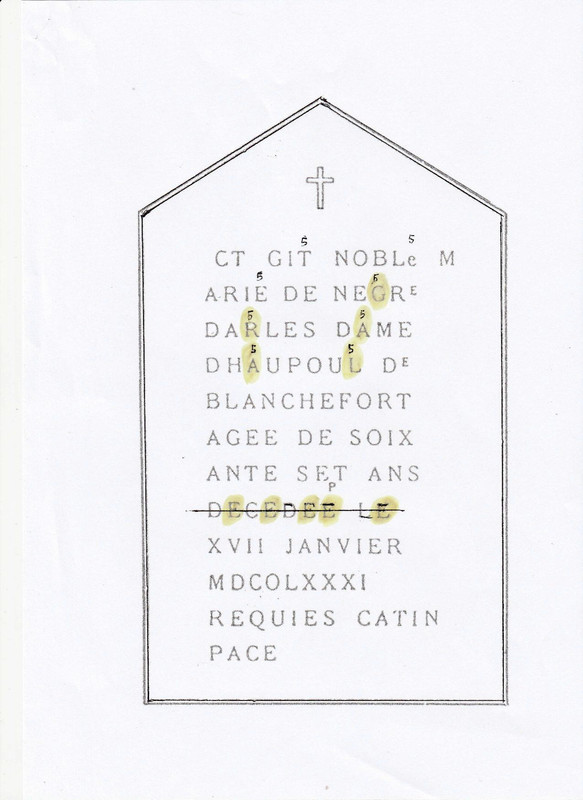 5 5
CT GIT NOBLe M
5 5
ARIE DE NEGRE
5 5
DARLES DAME
5 5
DHAUPOUL DE
BLANCHEFORT
AGEE DE SOIX
ANTE SET ANS
P
DECEDEE LE
XVII JANVIER
MDCOLXXXI
REQUIES CATIN
PACE